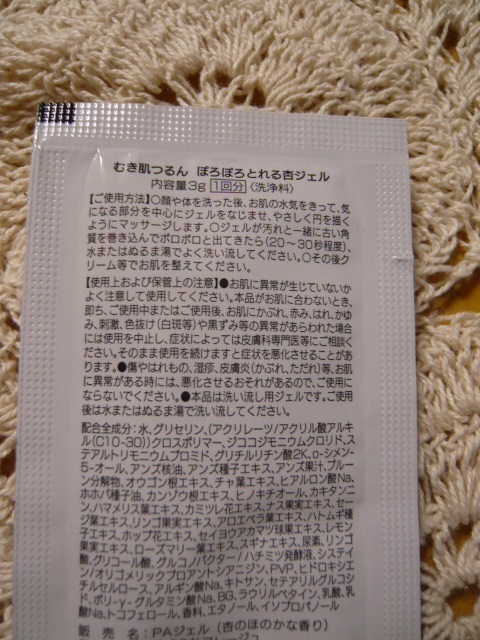 むき肌つるん ぽろぽろとれる杏ジェル
内容量3g 1回分 〈洗浄料〉
【ご使用方法】○顔や体を洗った後、お肌の水気をきって、気
になる部分を中心にジェルをなじませ、やさしく円を描く
ようにマッサージします。○ジェルが汚れと一緒に古い角
質を巻き込んでポロポロと出てきたら(20〜30秒程度)、
水またはぬるま湯でよく洗い流してください。○その後ク
リーム等でお肌を整えてください。
【使用上および保管上の注意】●お肌に異常が生じていないか
よく注意して使用してください。本品がお肌に合わないとき、
即ち、ご使用中またはご使用後、お肌にかぶれ、赤み、はれ、かゆ
み、刺激、色抜け(白斑等)や黒ずみ等の異常があらわれた場合
には使用を中止し、症状によっては皮膚科専門医等にご相談く
ださい。そのまま使用を続けますと症状を悪化させることがあ
ります。●傷やはれもの、湿疹、皮膚炎(かぶれ、ただれ)等、お肌
に異常がある時には、悪化させるおそれがあるので、ご使用に
ならないでください。●本品は洗い流し用ジェルです。ご使用
後は水またはぬるま湯で洗い流してください。
配合全成分:水、グリセリン、(アクリレーツ/アクリル酸アルキ
ル(C10-30))クロスポリマー、ジココジモニウムクロリド、ス
テアルトリモニウムブロミド、グリチルリチン酸2K、o-シメン-
5-オール、アンズ核油、アンズ種子エキス、アンズ果汁、プルー
ン分解物、オウゴン根エキス、チャ葉エキス、ヒアルロン酸Na、
ホホバ種子油、カンゾウ根エキス、ヒノキチオール、カキタンニ
ン、ハマメリス葉エキス、カミツレ花エキス、ナス果実エキス、セー
ジ葉エキス、リンゴ果実エキス、アロエベラ葉エキス、ハトムギ種
子エキス、ホップ花エキス、セイヨウアカマツ球果エキス、レモン
果実エキス、ローズマリー葉エキス、スギナエキス、尿素、リンゴ
酸、グリコール酸、グルコノバクター/ハチミツ発酵液、システイ
ン/オリゴメリックプロアントシアニジン、PVP、ヒドロキシエ
チルセルロース、アルギン酸Na、キトサン、セテアリルグルコシ
ド、ポリ-γ-グルタミン酸Na、BG、ラウリルベタイン、乳酸、乳
酸Na、トコフェロール、香料、エタノール、イソプロパノール
販 売 名:PAジェル (杏のほのかな香り)